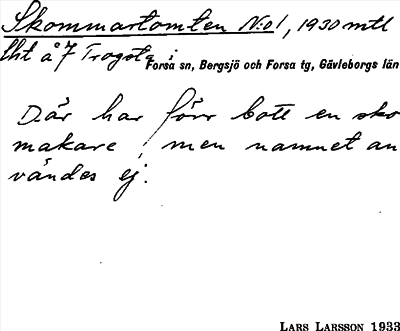 Skommartomten No 1, 1930 mtl
lht å 7 Trogsta i
Forsa sn, Bergsjö och Forsa tg, Gävleborgs län
Där har förr bott en sko
makare, men namnet an
vändes ej.
LARS LARSSON 1933